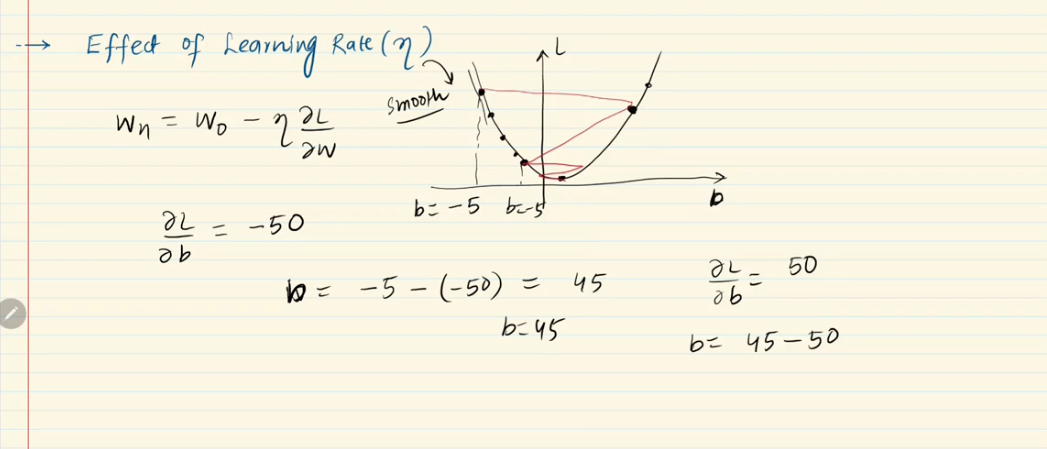 --→ Effect of Learning Rate (η)
L
smooth
Wη = W₀ − η ∂L/∂W
b
b = -5
b=-5
∂L/∂b = -50
b = -5 - (-50) = 45
b=45
∂L/∂b = 50
b= 45-50